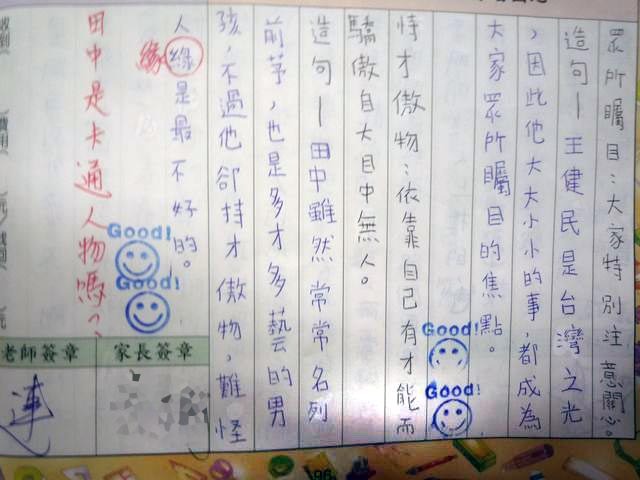 眾所矚目：大家特別注意關心。
造句－王健民是台灣之光
，因此他大大小小的事，都成為
大家眾所矚目的焦點。
恃才傲物：依靠自己有才能而
驕傲自大目中無人。
造句－田中雖然常常名列
前茅，也是多才多藝的男
孩，不過他卻持才傲物，難怪
人緣是最不好的。
緣
田中是卡通人物嗎？
Good!
Good!
Good!
Good!
家長簽章
老師簽章
連
96